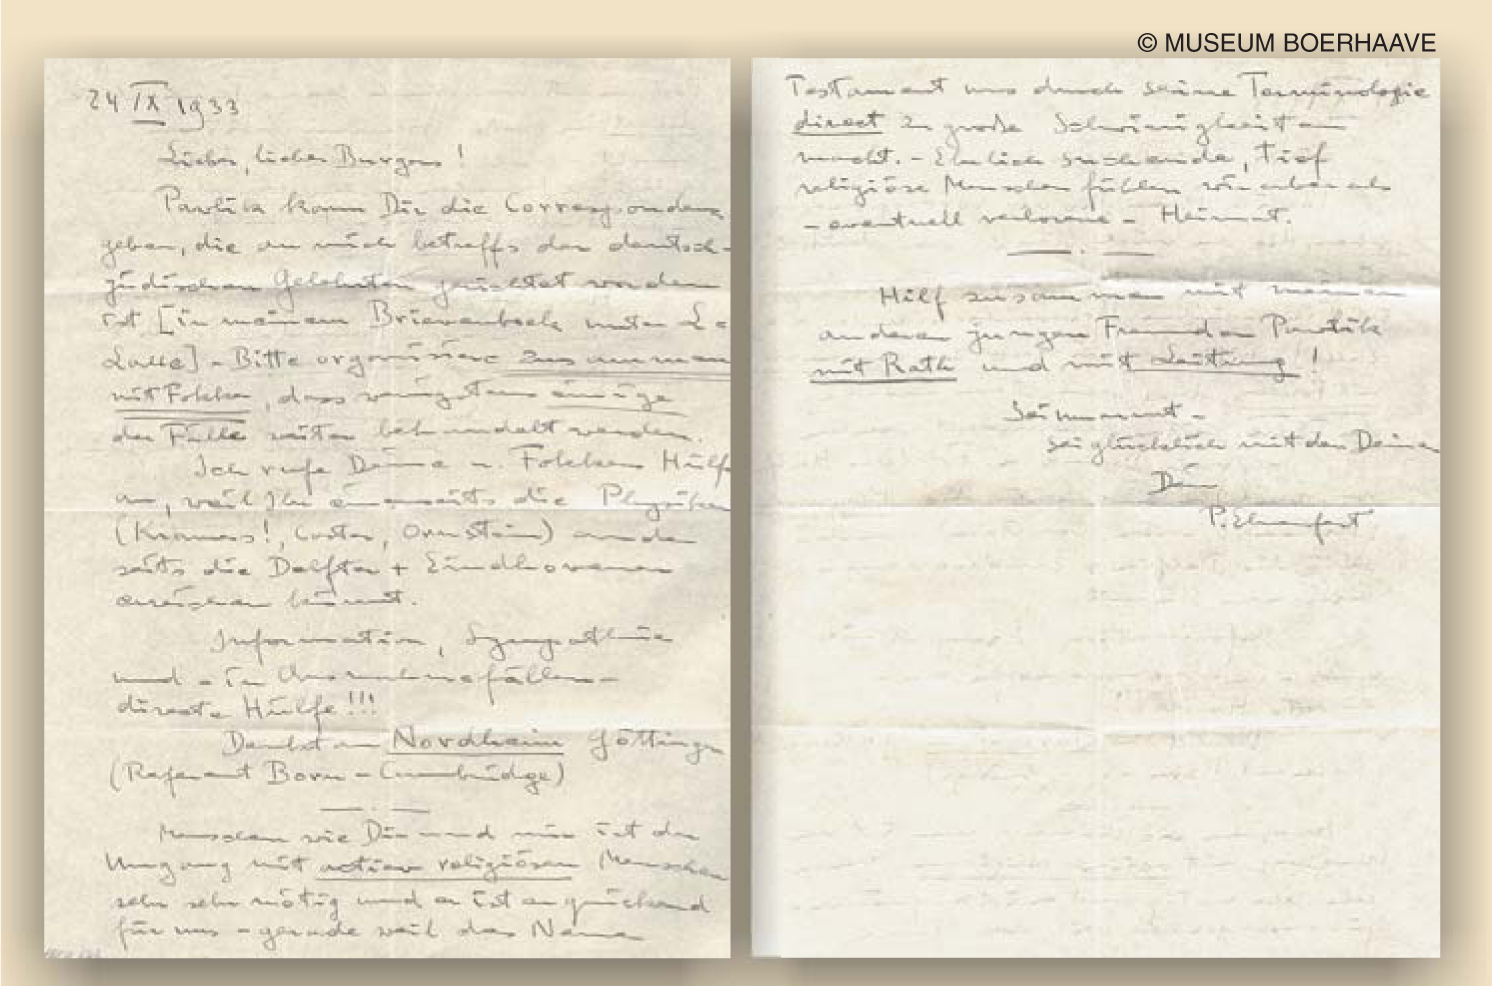 © MUSEUM BOERHAAVE
24 IX 1933
Lieber, lieber Burgers!
Pawlik kann Dir die Correspondenz
geben, die an mich betreffs der deutsch-
jüdischen Gelehrten gerichtet worden
ist [in meinem Brievenboek unter
] - Bitte organisiere zusammen
mit Fokker, dass wenigstens einige
der Fälle weiter behandelt werden.
Ich rufe Deine u. Fokkers Hülfe
an, weil Ihr einerseits die Physiker
(Kramers!, Coster, Ornstein) ander
seits die Delfter + Eindhovener
erreichen könnt.
Information, Sympathie
und - in Ausnahmsfällen -
directe Hülfe!!!
Denket an Nordheim Göttingen
(Referent Born - Cambridge)
Menschen wie Dir und mir ist der
Umgang mit activ religiösen Menschen
sehr sehr nötig und er ist erquickend
für uns - gerade weil das Neue
Testament uns durch seine Terminologie
direct zu große Schwierigkeiten
macht. - Ehrlich suchende, tief
religiöse Menschen fühlen wir aber als
- eventuell verlorene - Heimat.
Hilf zusammen mit meinen
anderen jungen Freunden Pawlik
mit Rath und mit Leitung!
Sei umarmt -
sei glücklich mit den Deinen
Dein
P. Ehrenfest